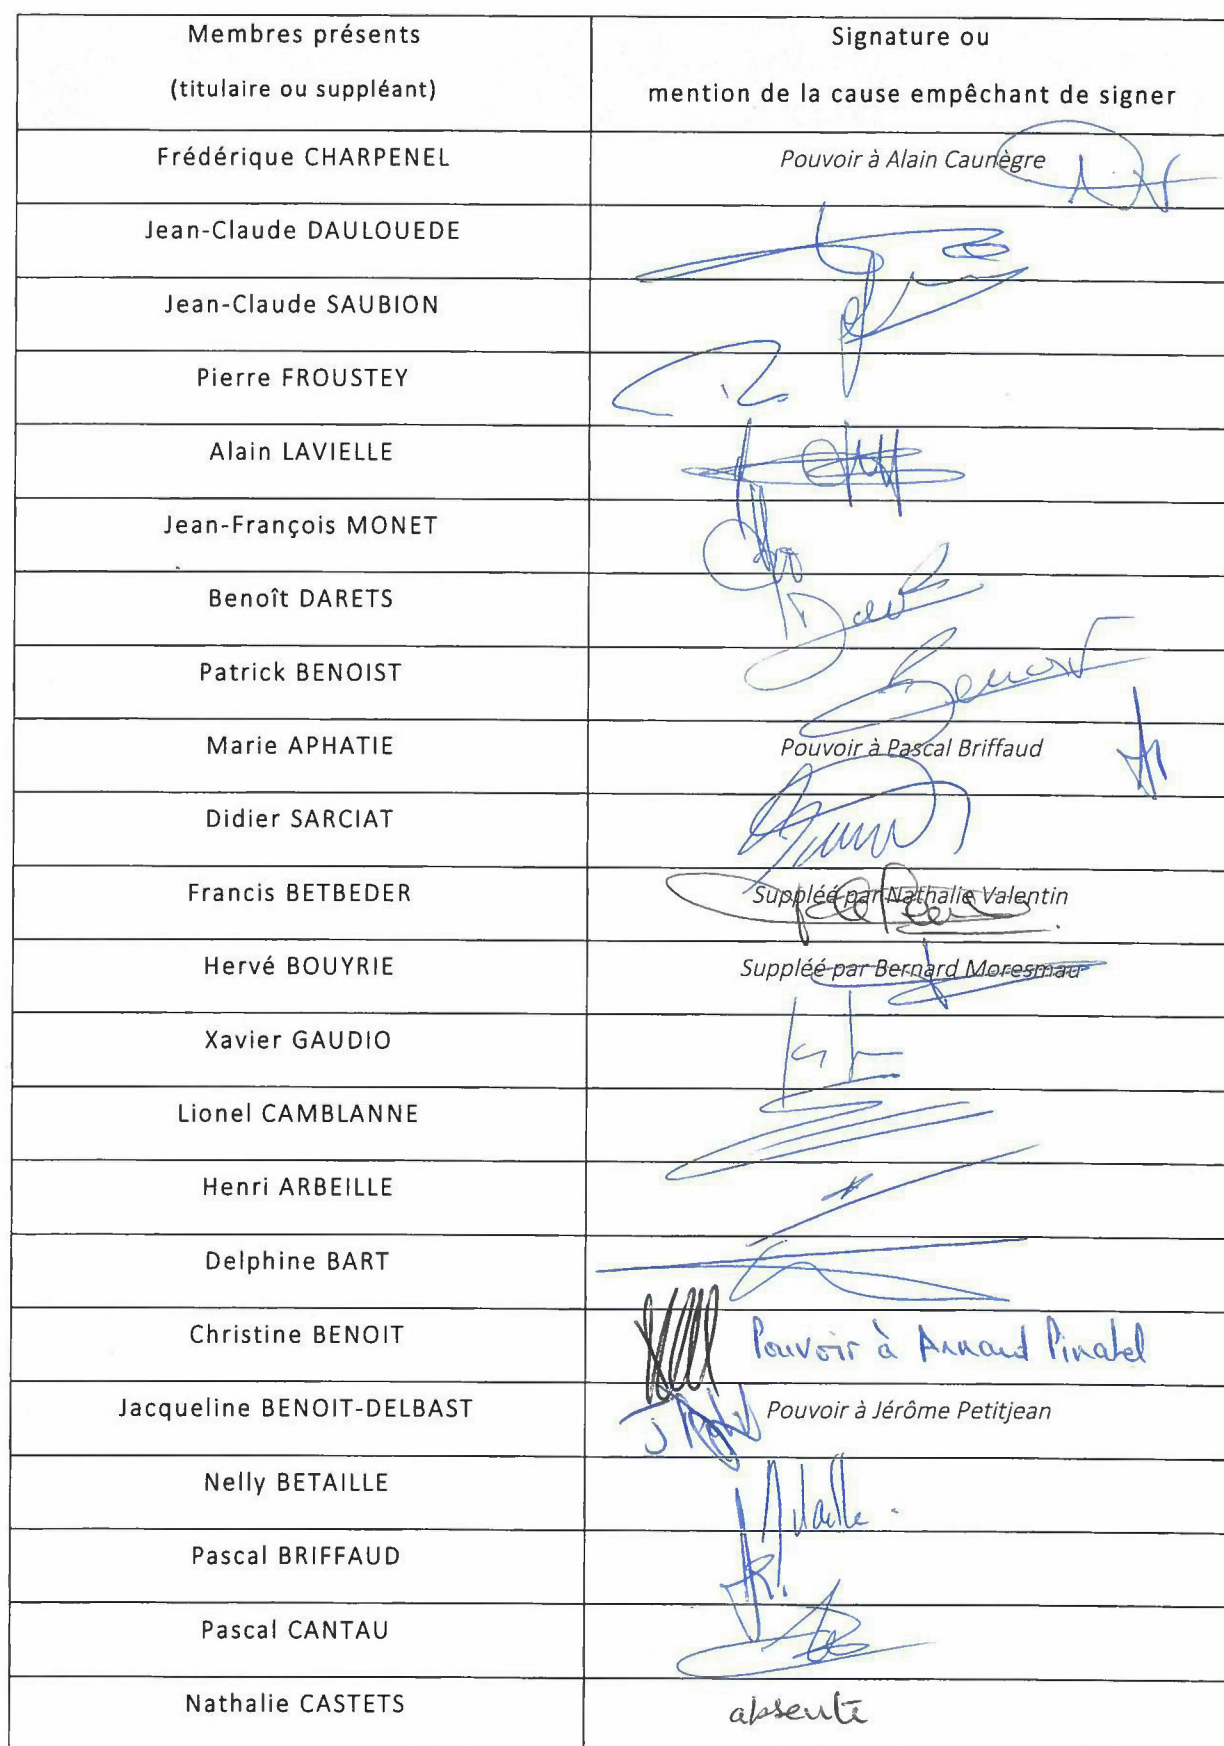 Membres présents
(titulaire ou suppléant)
Signature ou
mention de la cause empêchant de signer
Frédérique CHARPENEL
Pouvoir à Alain Caunègre
Jean-Claude DAULOUEDE
Jean-Claude SAUBION
Pierre FROUSTEY
Alain LAVIELLE
Jean-François MONET
Benoît DARETS
Patrick BENOIST
Benoist
Marie APHATIE
Pouvoir à Pascal Briffaud
Didier SARCIAT
Francis BETBEDER
Suppléé par Nathalie Valentin
Hervé BOUYRIE
Suppléé par Bernard Moresmau
Xavier GAUDIO
Lionel CAMBLANNE
Henri ARBEILLE
Delphine BART
Christine BENOIT
Pouvoir à Arnaud Pinatel
Jacqueline BENOIT-DELBAST
Pouvoir à Jérôme Petitjean
Nelly BETAILLE
Pascal BRIFFAUD
Pascal CANTAU
Nathalie CASTETS
absente